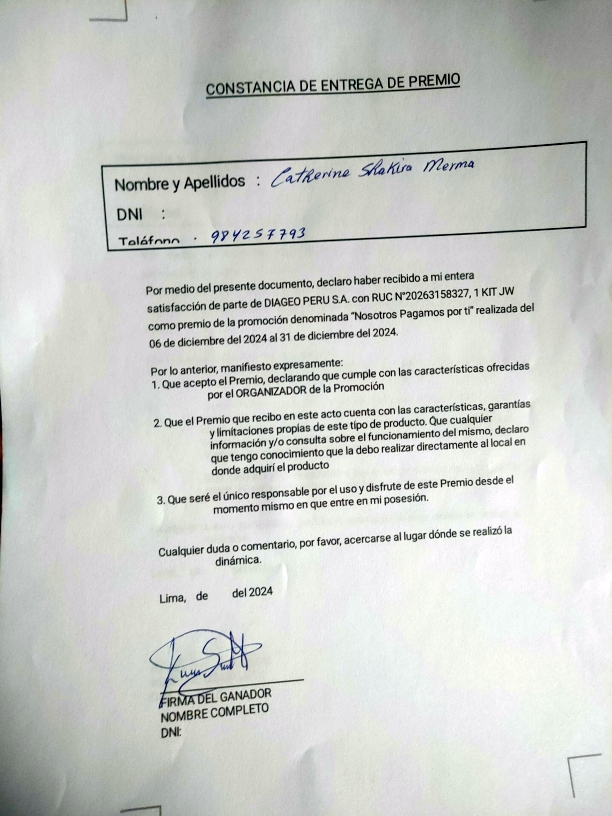 CONSTANCIA DE ENTREGA DE PREMIO
Nombre y Apellidos : Catherine Shakira Merma
DNI :
Teléfono : 984257793
Por medio del presente documento, declaro haber recibido a mi entera
satisfacción de parte de DIAGEO PERU S.A. con RUC N°20263158327, 1 KIT JW
como premio de la promoción denominada "Nosotros Pagamos por ti" realizada del
06 de diciembre del 2024 al 31 de diciembre del 2024.
Por lo anterior, manifiesto expresamente:
1. Que acepto el Premio, declarando que cumple con las características ofrecidas
por el ORGANIZADOR de la Promoción
2. Que el Premio que recibo en este acto cuenta con las características, garantías
y limitaciones propias de este tipo de producto. Que cualquier
información y/o consulta sobre el funcionamiento del mismo, declaro
que tengo conocimiento que la debo realizar directamente al local en
donde adquirí el producto
3. Que seré el único responsable por el uso y disfrute de este Premio desde el
momento mismo en que entre en mi posesión.
Cualquier duda o comentario, por favor, acercarse al lugar dónde se realizó la
dinámica.
Lima, de del 2024
FIRMA DEL GANADOR
NOMBRE COMPLETO
DNI: